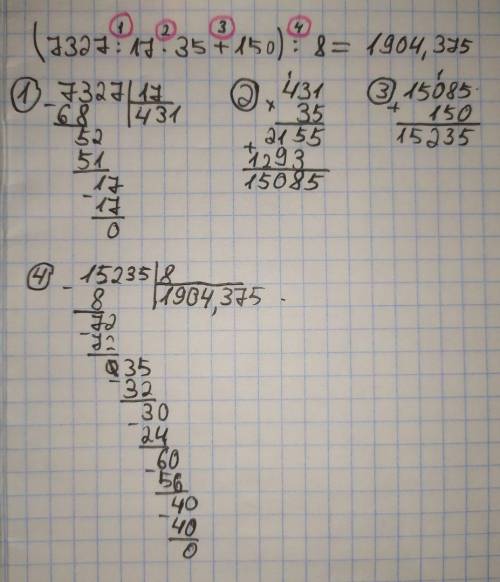 ① ② ③ ④
(7327:17·35+150):8= 1904,375
① 7327|17
- 68 |431
52
51
- 17
17
0
② 431
× 35
2155
+ 1293
15085
③ 15085
+ 150
15235
④ - 15235|8
8 |1904,375.
- 72
72
035
- 32
30
- 24
60
- 56
40
- 40
0